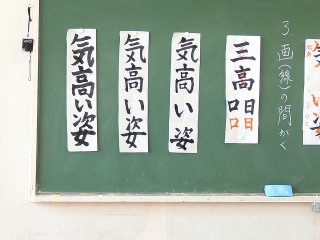 3 画(線)の間かく
三高
口日
口日
気高い姿
気高い姿
気高い姿